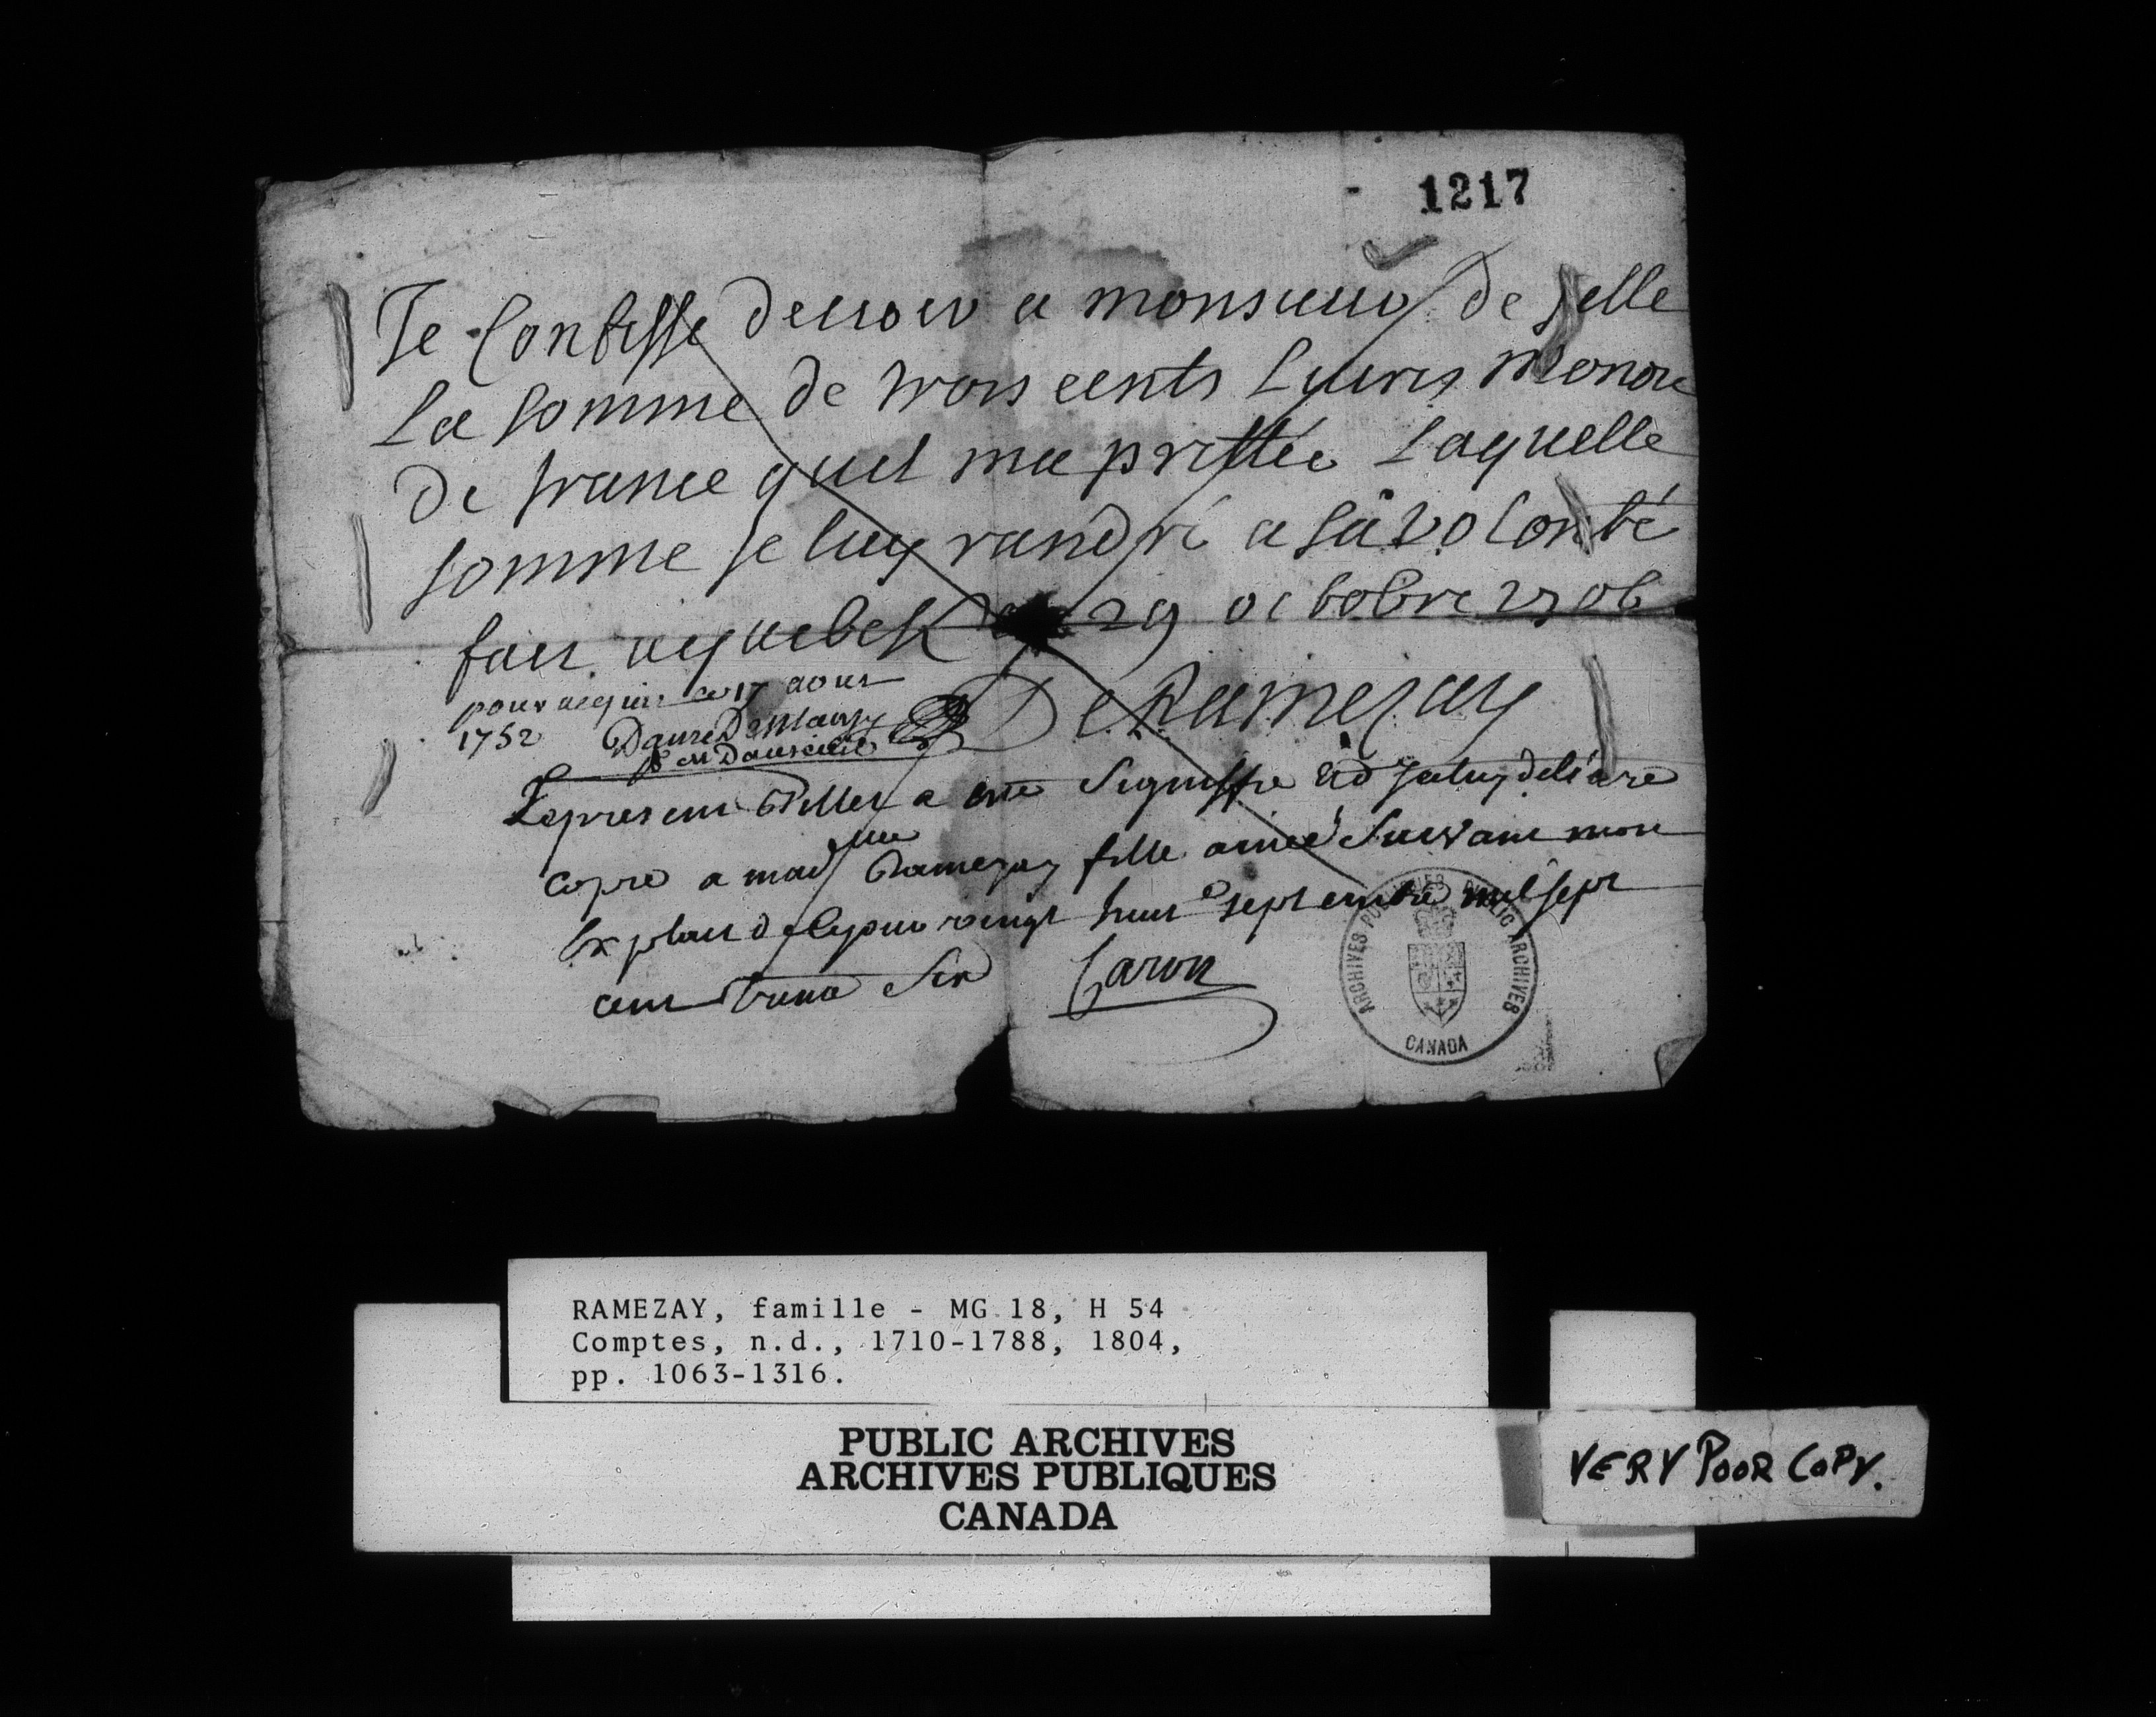 1217
Je Confesse devoir a monsieur de selle
La somme de trois cents Livres Monoie
de france quil ma prettée Laquelle
somme je luy randré a sa volonté
fait a quebek 29 octobre 1706
pour acquit ce 17 aout
1752
De Ramezay
Le present Billet a esté Signiffié Et dJceluy delivré
copie a mad lle Ramezay fille ainée Suivant mon
Exploit de ce jour vingt huit septembre mil sept
cent trente Six Caron
ARCHIVES PUBLIQUES PUBLIC ARCHIVES
CANADA
RAMEZAY, famille - MG 18, H 54
Comptes, n.d., 1710-1788, 1804,
pp. 1063-1316.
PUBLIC ARCHIVES
ARCHIVES PUBLIQUES
CANADA
VERY POOR COPY.